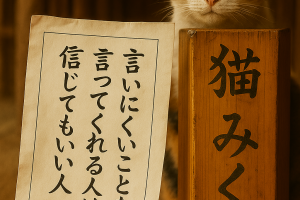 言いにくいことを
言ってくれる人は
信じてもいい人
猫みく